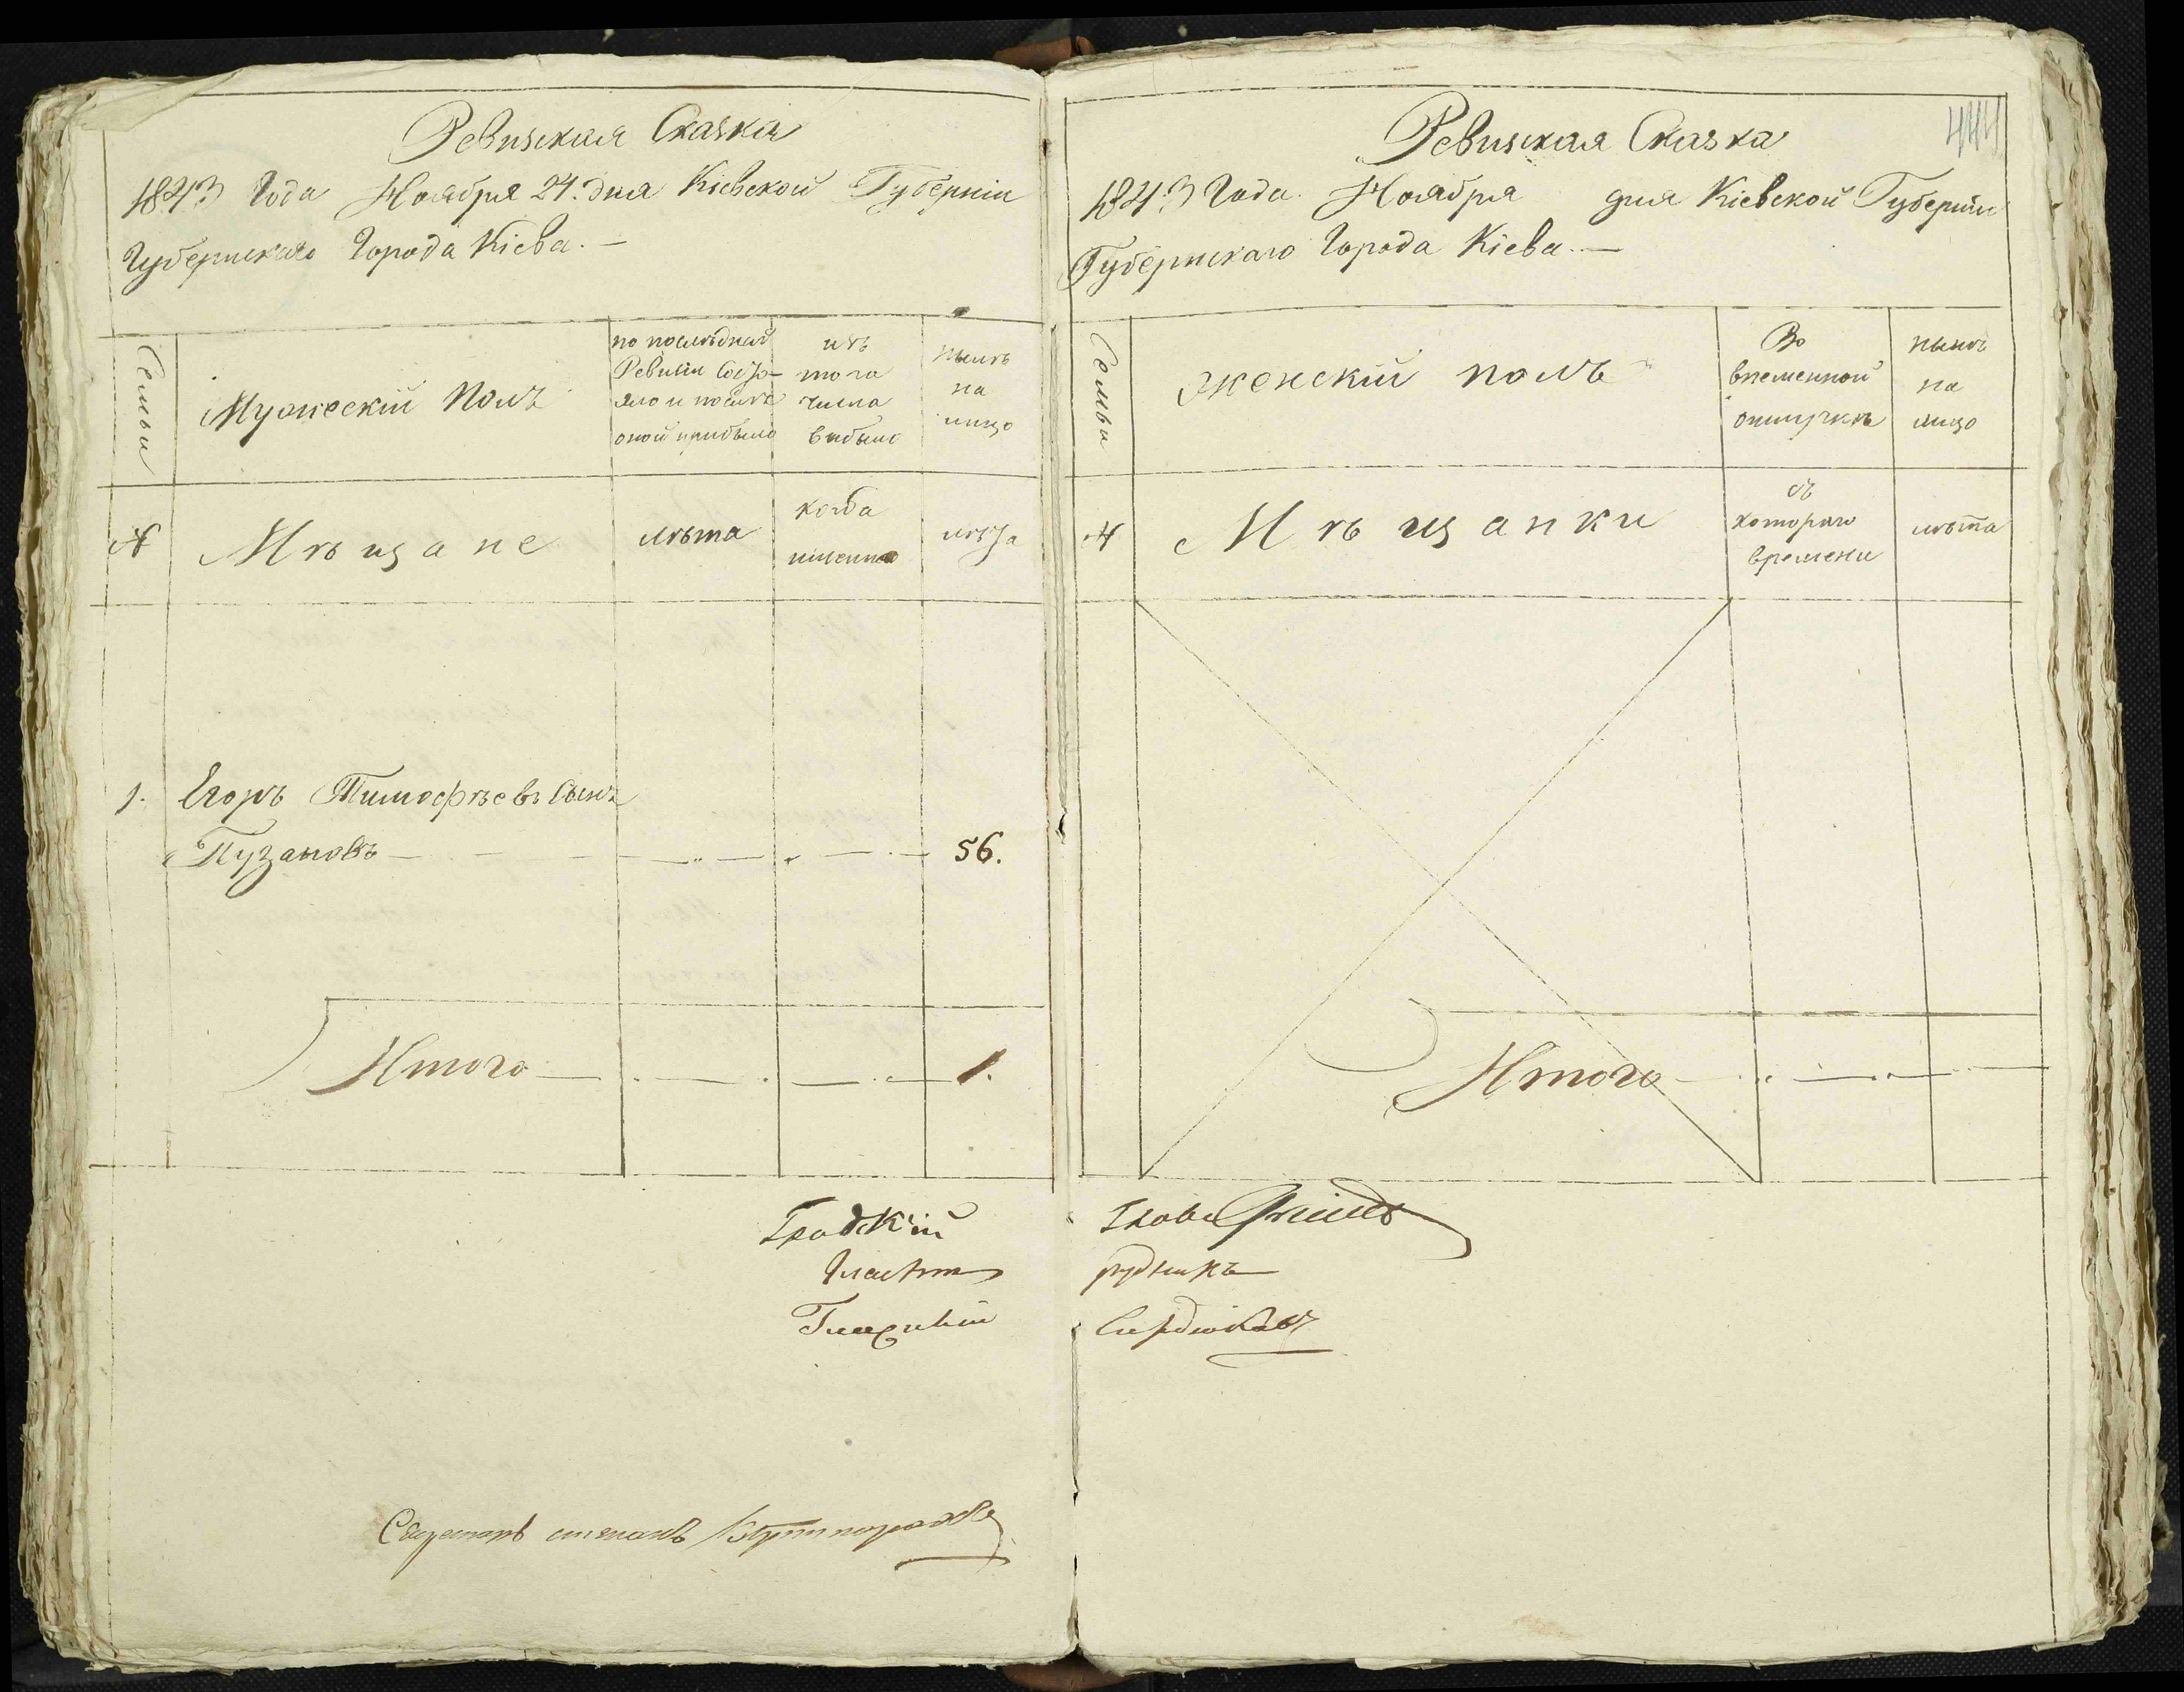 Ревизская Сказка
1843 Года Ноября 24. дня Кіевской Губерніи
Губернскаго Города Кіева. —
Семьи
Мужескій Полъ
по последней
Ревизіи Состо-
яло и после
оной прибыло
изъ
того
числа
выбыло
ныне
на
лицо
№
Мѣщане
лѣта
когда
именно
лѣта
1. Егоръ Тимофѣевъ Сынъ
Пузановъ — 56.
Итого — 1.
Градскій
Секретарь
444
Ревизская Сказка
1843 Года Ноября дня Кіевской Губерніи
Губернскаго Города Кіева. —
Семьи
женскій полъ
Во
временной
отлучкѣ
нынѣ
на
лицо
№
Мѣщанки
съ
котораго
времени
лѣта
Итого
Глава